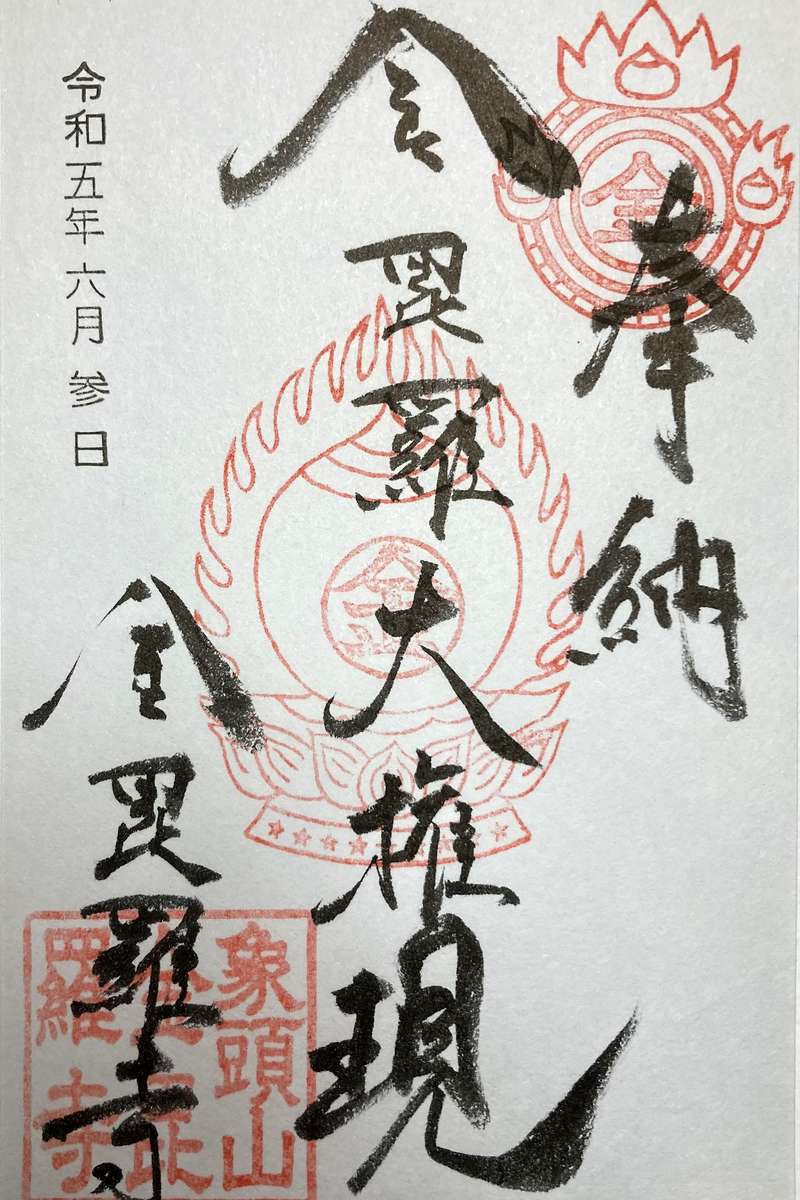 奉納
金毘羅大権現
金毘羅寺
令和五年六月参日
金
金
象頭山
金毘
羅寺